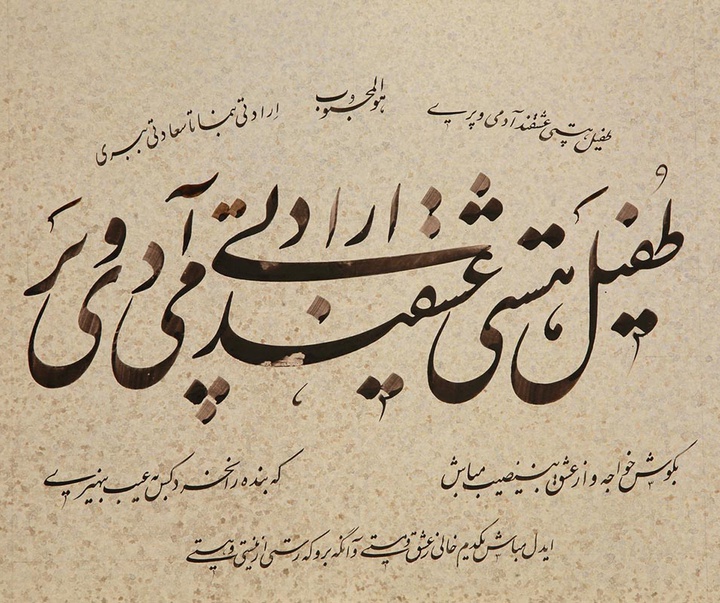 هوالمحبوب
طفیل هستی عشقند آدمی و پری
ارادتی بنما تا سعادتی ببری
طُفیل هستی عشقند آدمی و پری ارادتی
بکوش خواجه و از عشق بی نصیب مباش
که بنده را نخرد کس به عیب بی هنری
ایدل مباش یکدم خالی ز عشق و مستی وآنگه برو که رستی از نیستی و هستی